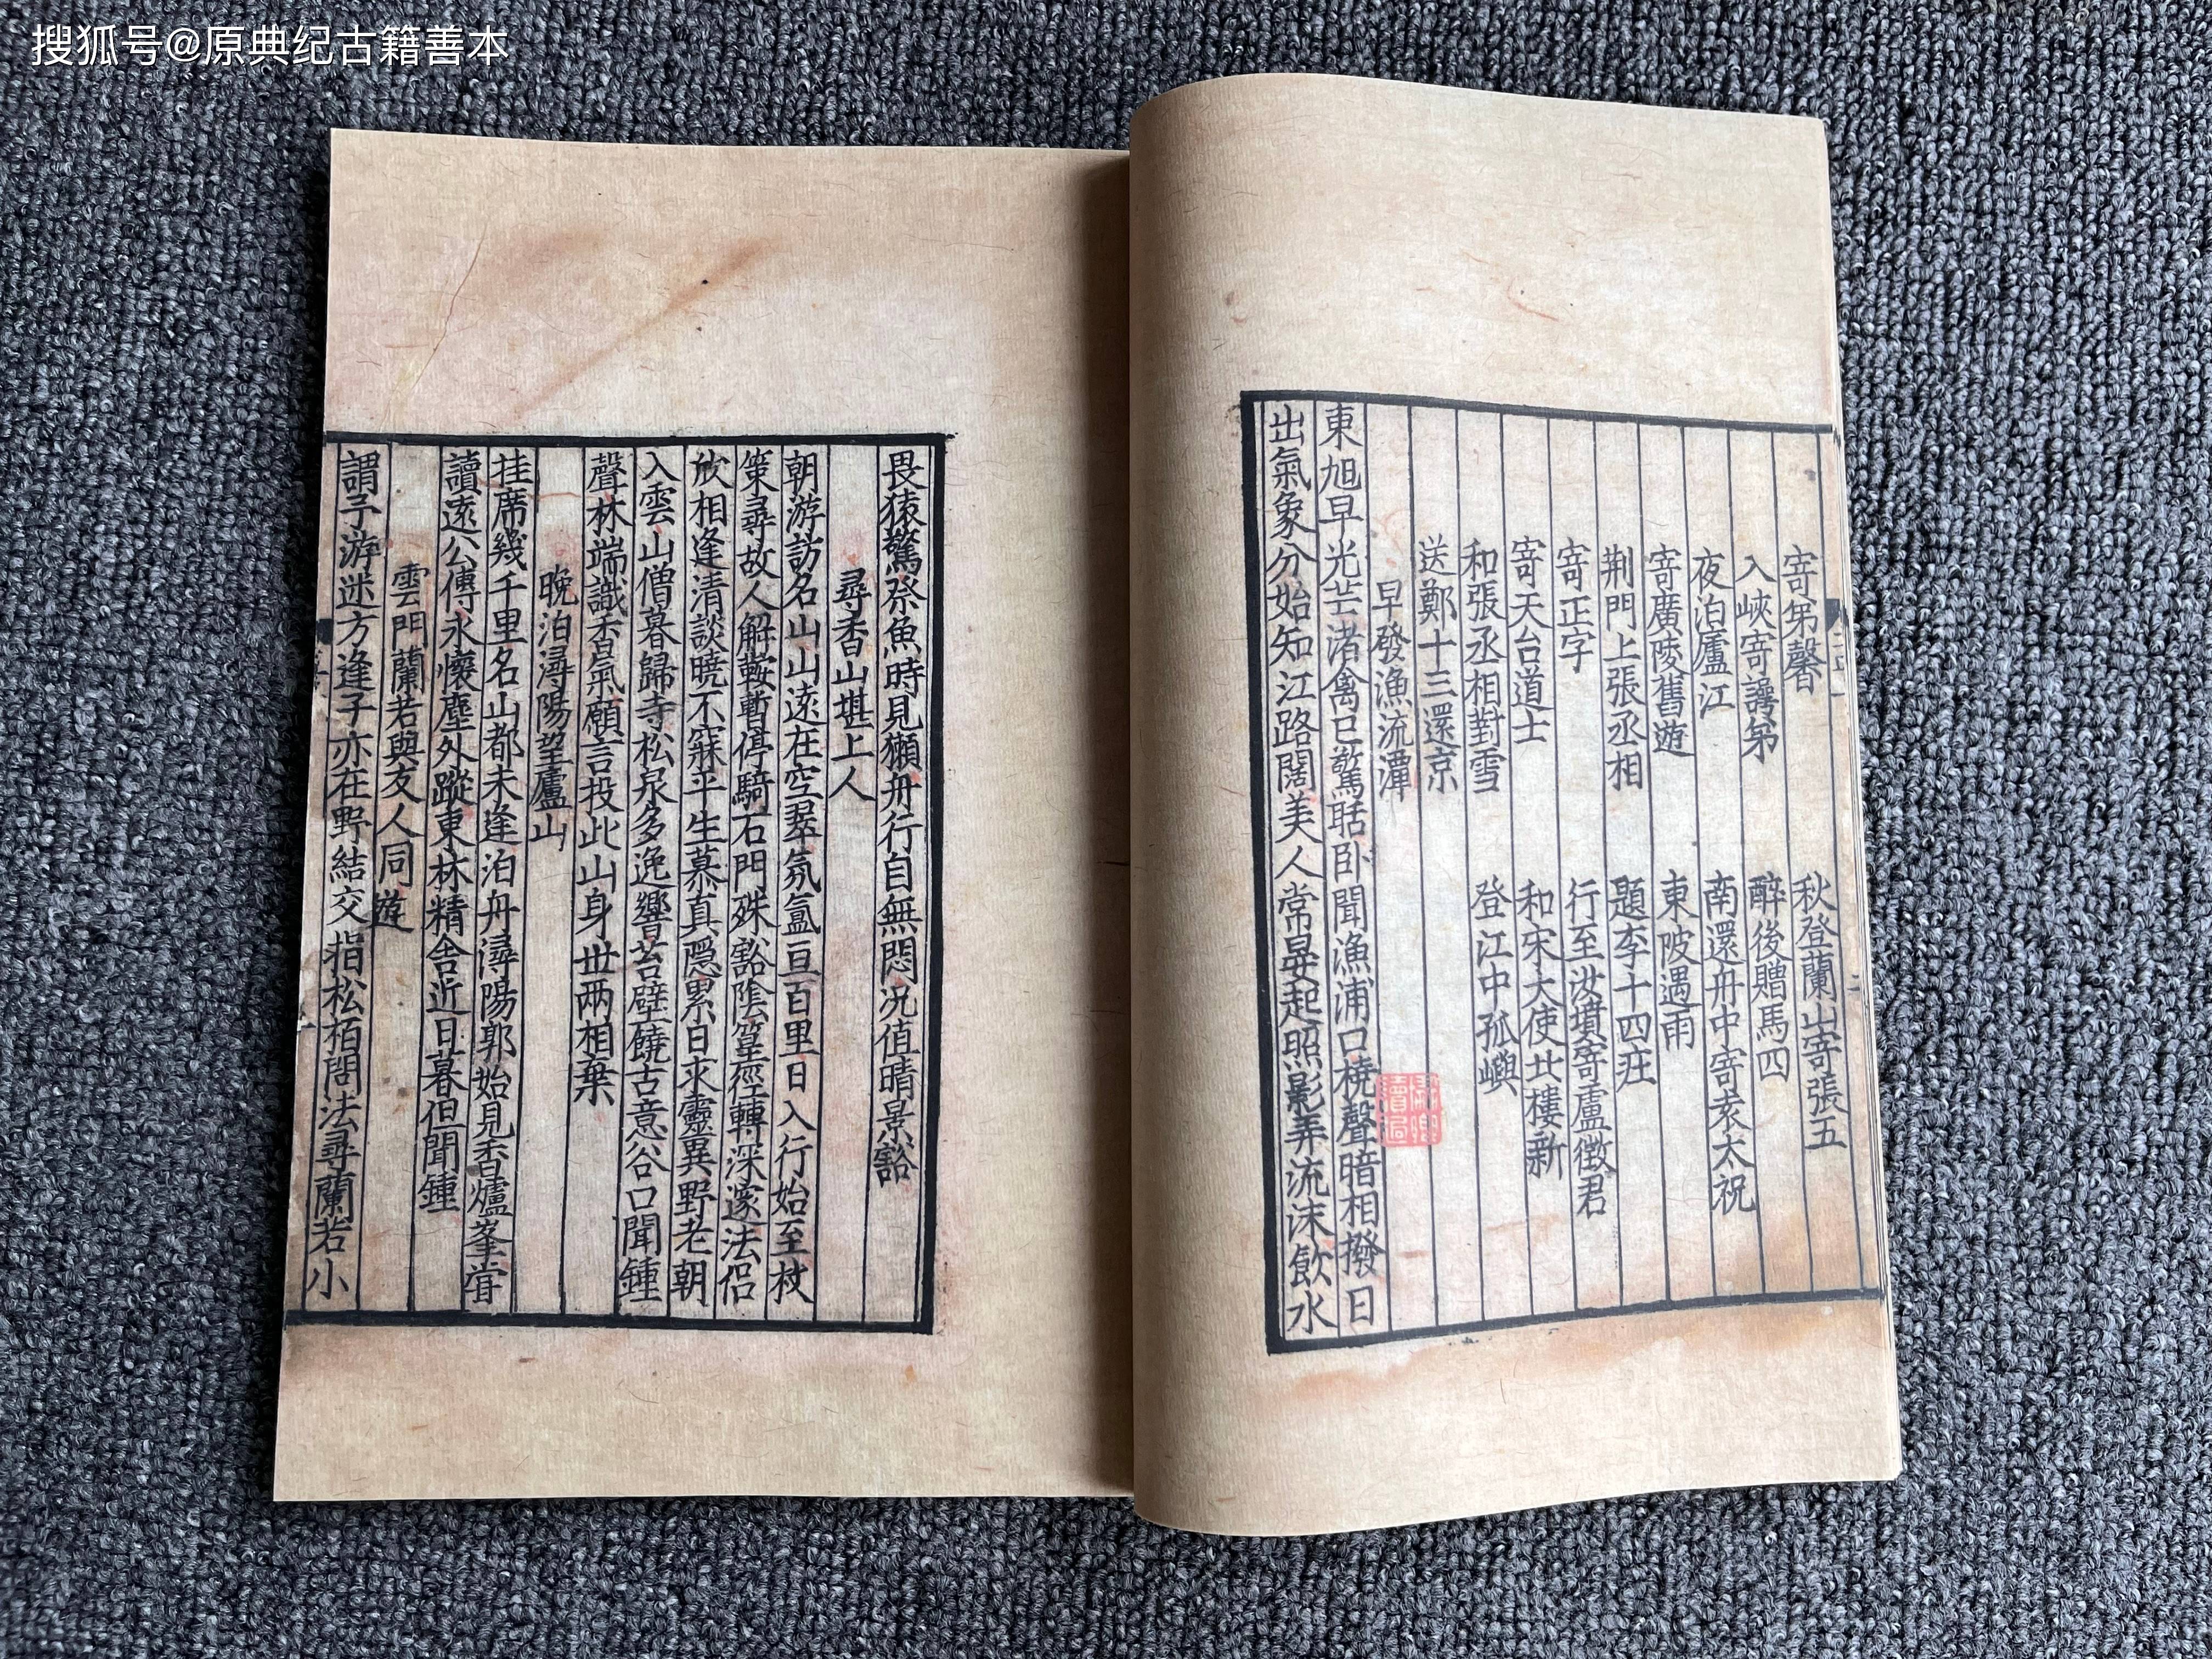 搜狐号@原典纪古籍善本
寄弟馨 秋登蘭山寄張五
入峽寄諤弟 醉後贈馬四
夜泊廬江 南還舟中寄袁太祝
寄廣陵舊遊 東陂遇雨
荆門上張丞相 題李十四庄
寄正字 行至汝墳寄盧徵君
寄天台道士 和宋大使北樓新
和張丞相對雪 登江中孤嶼
送鄭十三還京
早發漁流潭
東旭早光芒渚禽已驚聒卧聞漁浦口橈聲暗相撥日
出氣象分始知江路闊美人常晏起照影弄流沫飲水
畏猿驚祭魚時見獺舟行自無悶况值晴景豁
尋香山堪上人
朝游訪名山山遠在空翠氛氳亘百里日入行始至杖
策尋故人解鞍暫停騎石門殊豁陰篁徑轉深邃法侣
欣相逢清談曉不寐平生慕真隱累日求靈異野老朝
入雲山僧暮歸寺松泉多逸響苔壁饒古意谷口聞鍾
聲林端識香氣願言投此山身世兩相棄
晚泊潯陽望廬山
挂席幾千里名山都未逢泊舟潯陽郭始見香爐峯甞
讀遠公傳永懷塵外蹤東林精舍近日暮但聞鍾
雲門蘭若與友人同遊
謂子游迷方逢子亦在野結交指松栢問法尋蘭若小